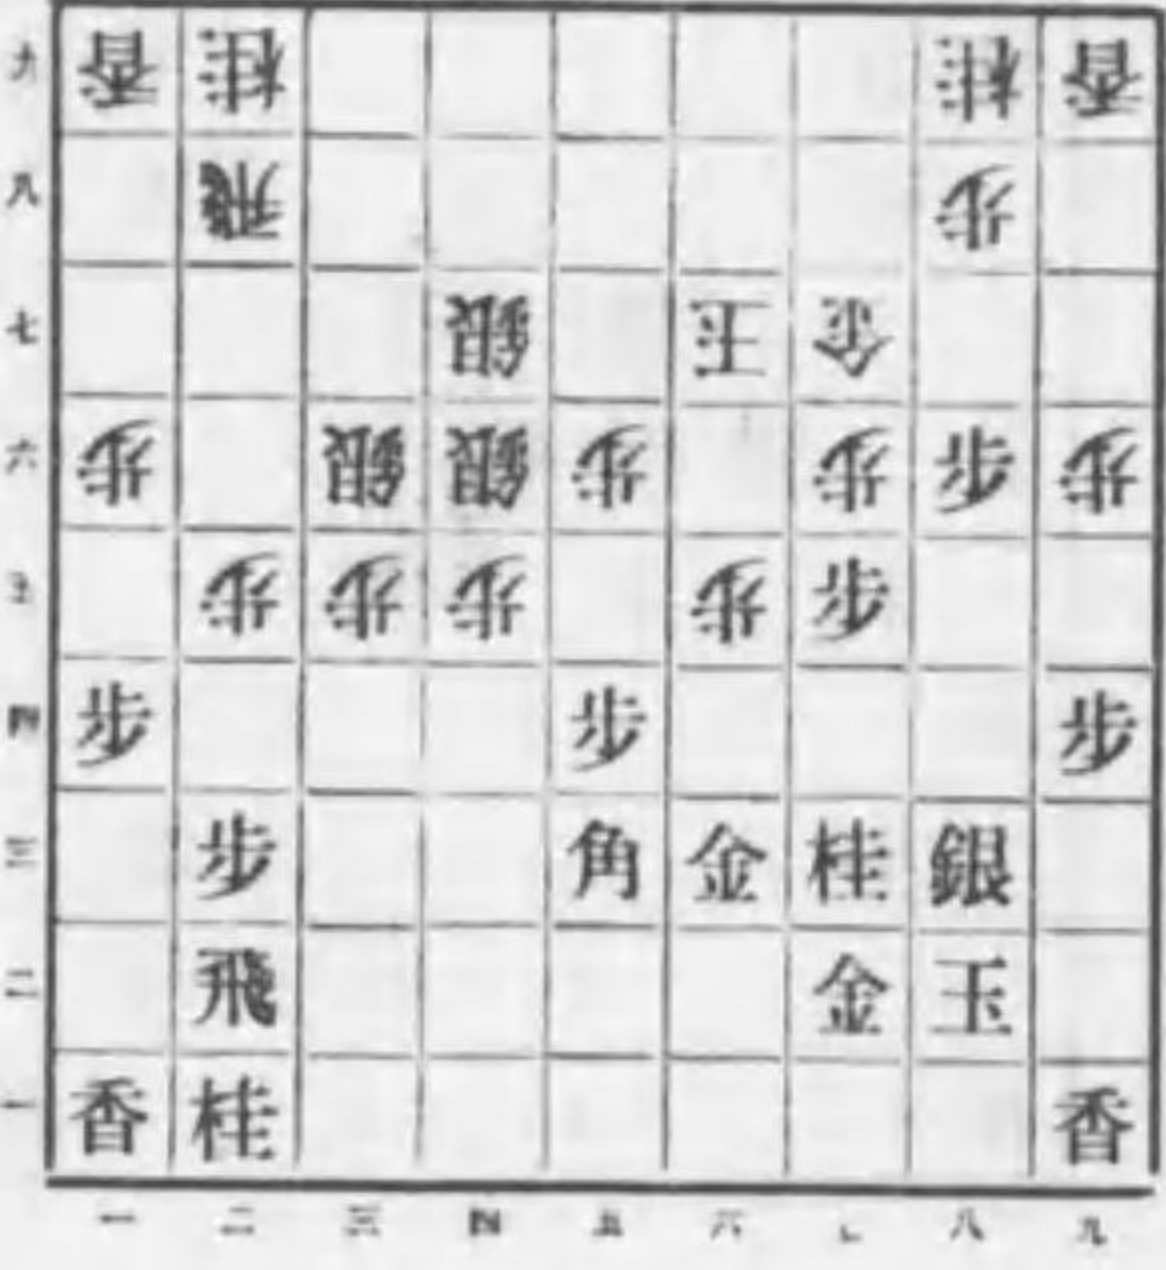 九 香 桂 桂 香
八 飛 歩
七 銀 王 金
六 歩 銀 銀 歩 歩 歩 歩
五 歩 歩 歩 歩 歩
四 歩 歩 歩
三 歩 角 金 桂 銀
二 飛 金 玉
一 香 桂 香
一 二 三 四 五 六 七 八 九